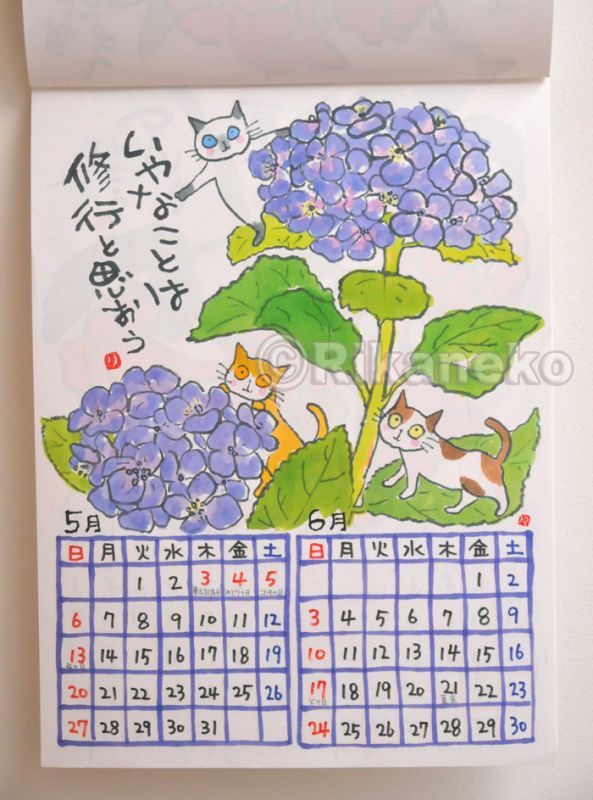 いやなことは
修行と思おう
©Rikaneko
5月
日 月 火 水 木 金 土
1 2 3 4 5
憲法記念日 みどりの日 こどもの日
6 7 8 9 10 11 12
13 14 15 16 17 18 19
母の日
20 21 22 23 24 25 26
27 28 29 30 31
6月
日 月 火 水 木 金 土
1 2
3 4 5 6 7 8 9
10 11 12 13 14 15 16
17 18 19 20 21 22 23
父の日 夏至
24 25 26 27 28 29 30